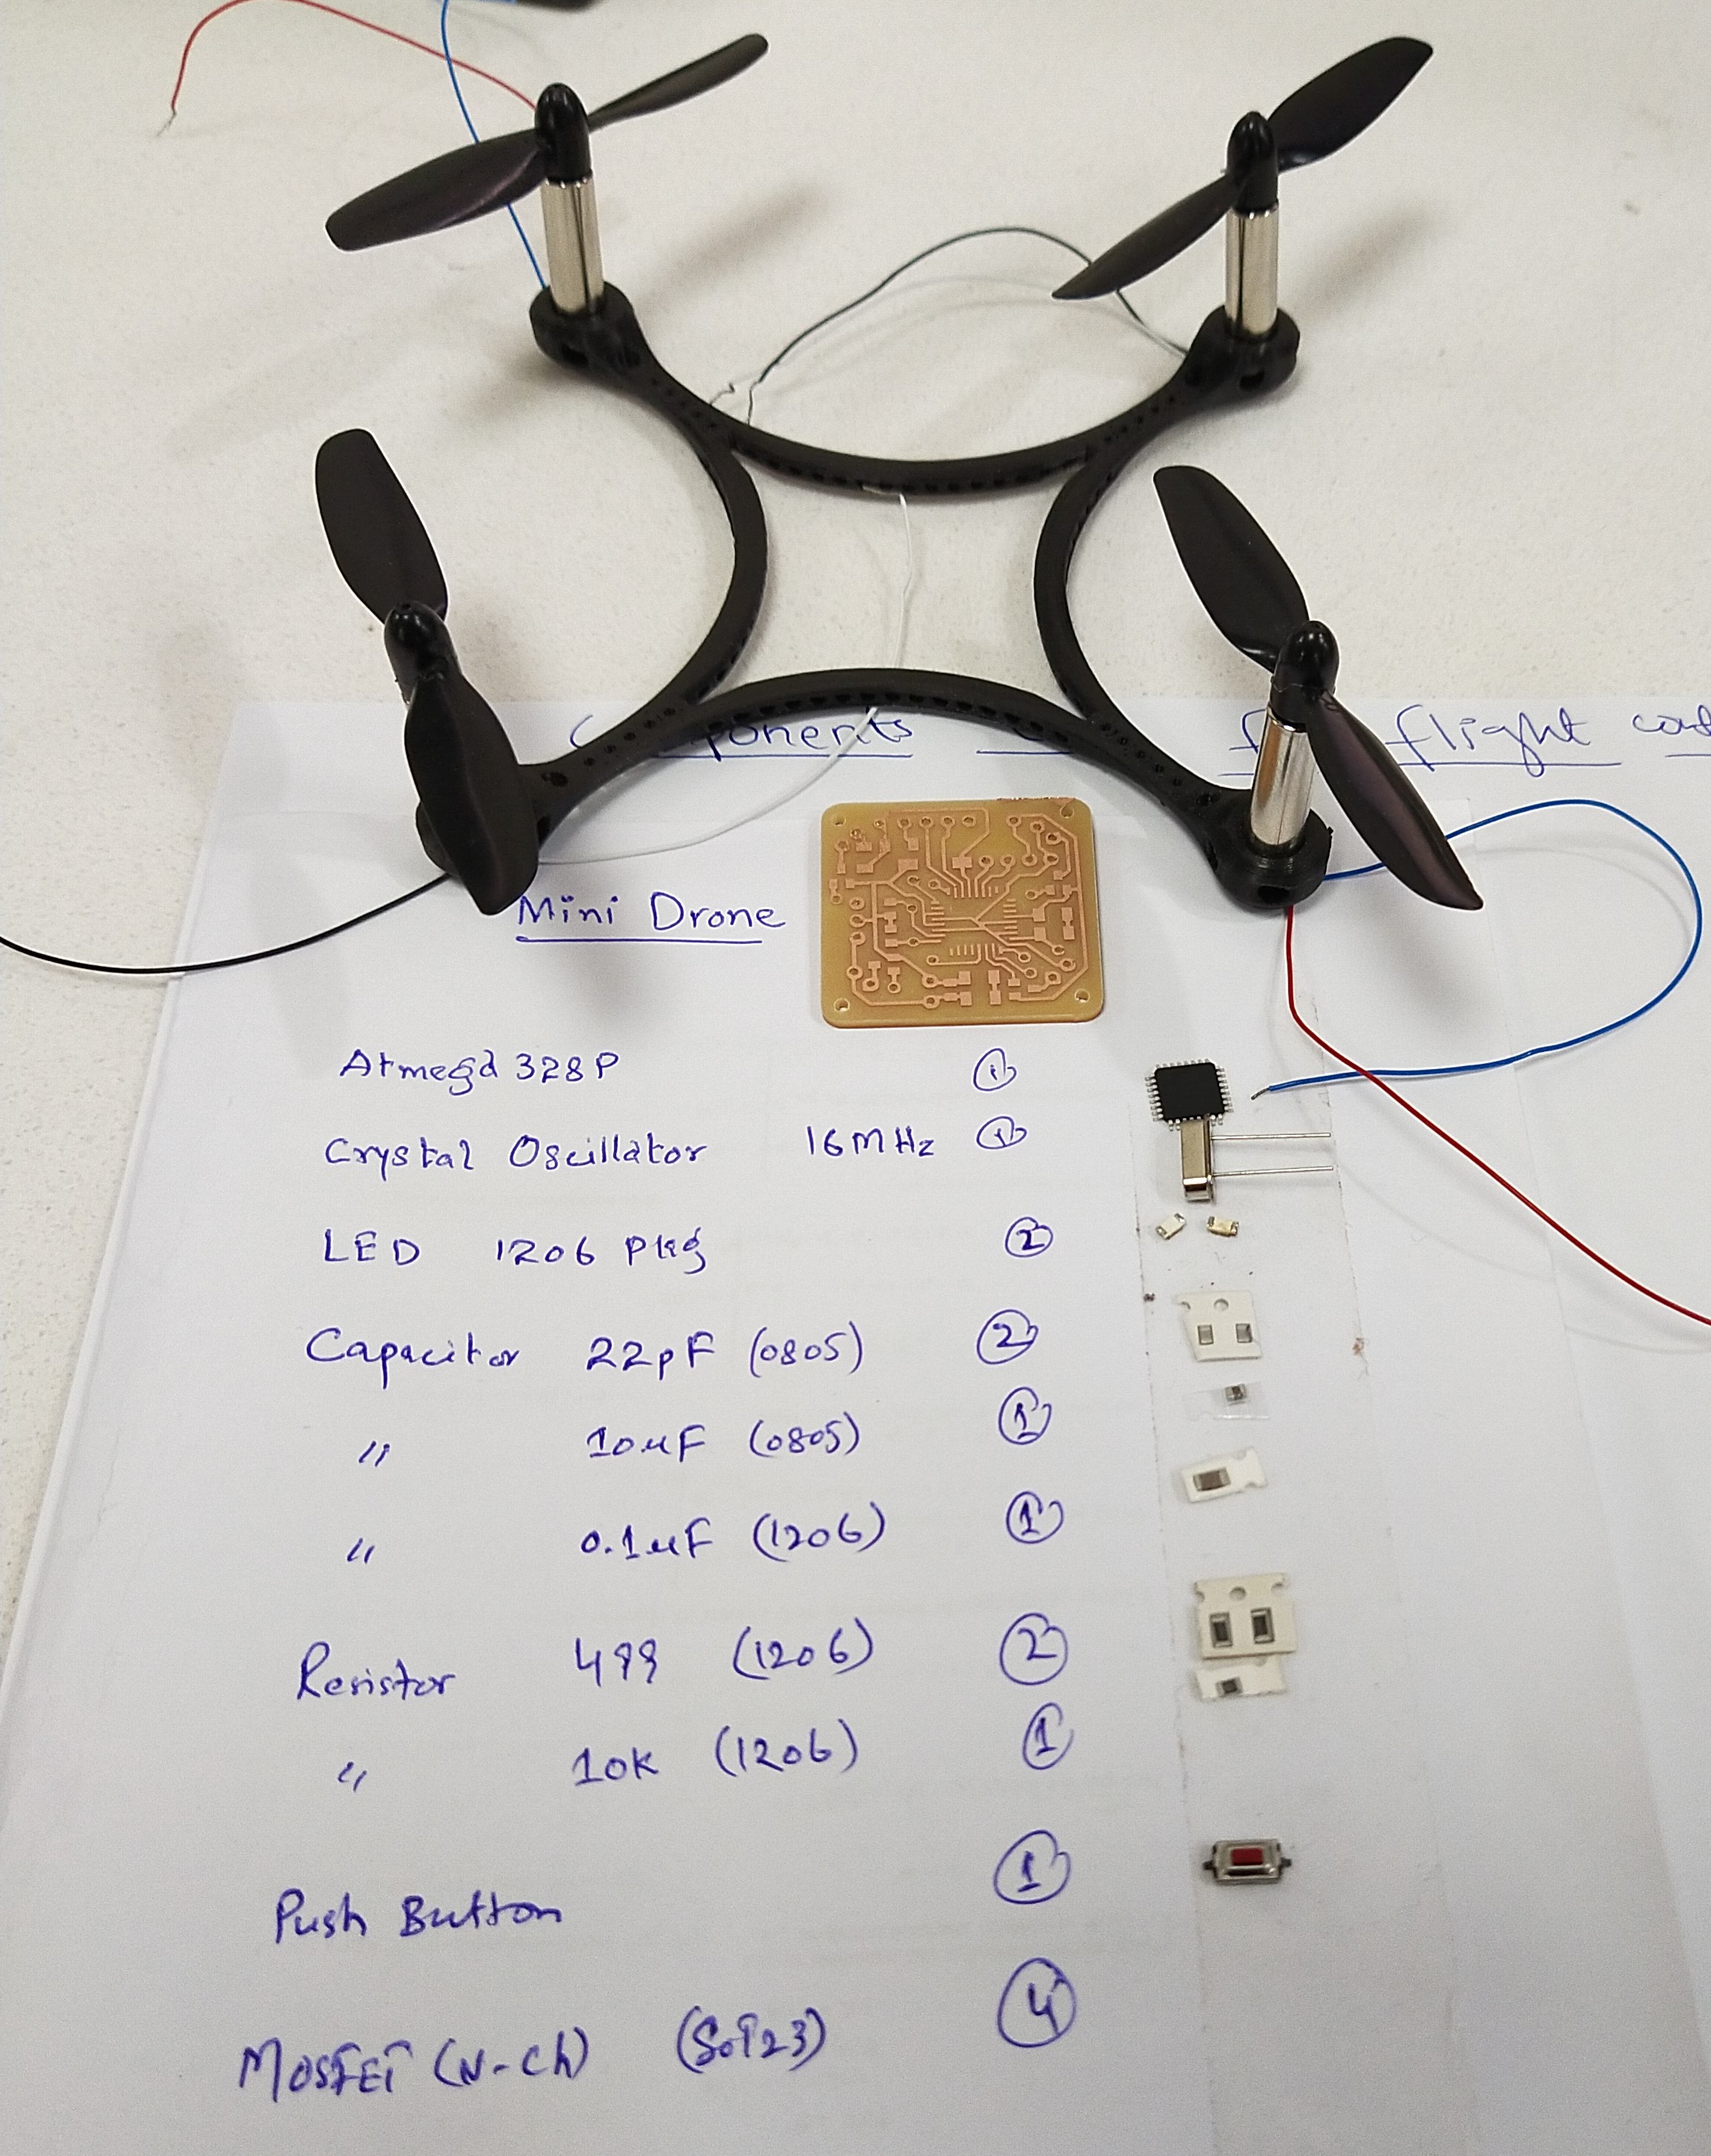 for flight
Mini Drone
Atmega 328P 1
Crystal Oscillator 16MHz 1
LED 1206 Pkg 2
Capacitor 22pF (0805) 2
" 10uF (0805) 1
" 0.1uF (1206) 1
Resistor 499 (1206) 2
" 10K (1206) 1
Push Button 1
MOSFET (N-Ch) (SOT23) 4